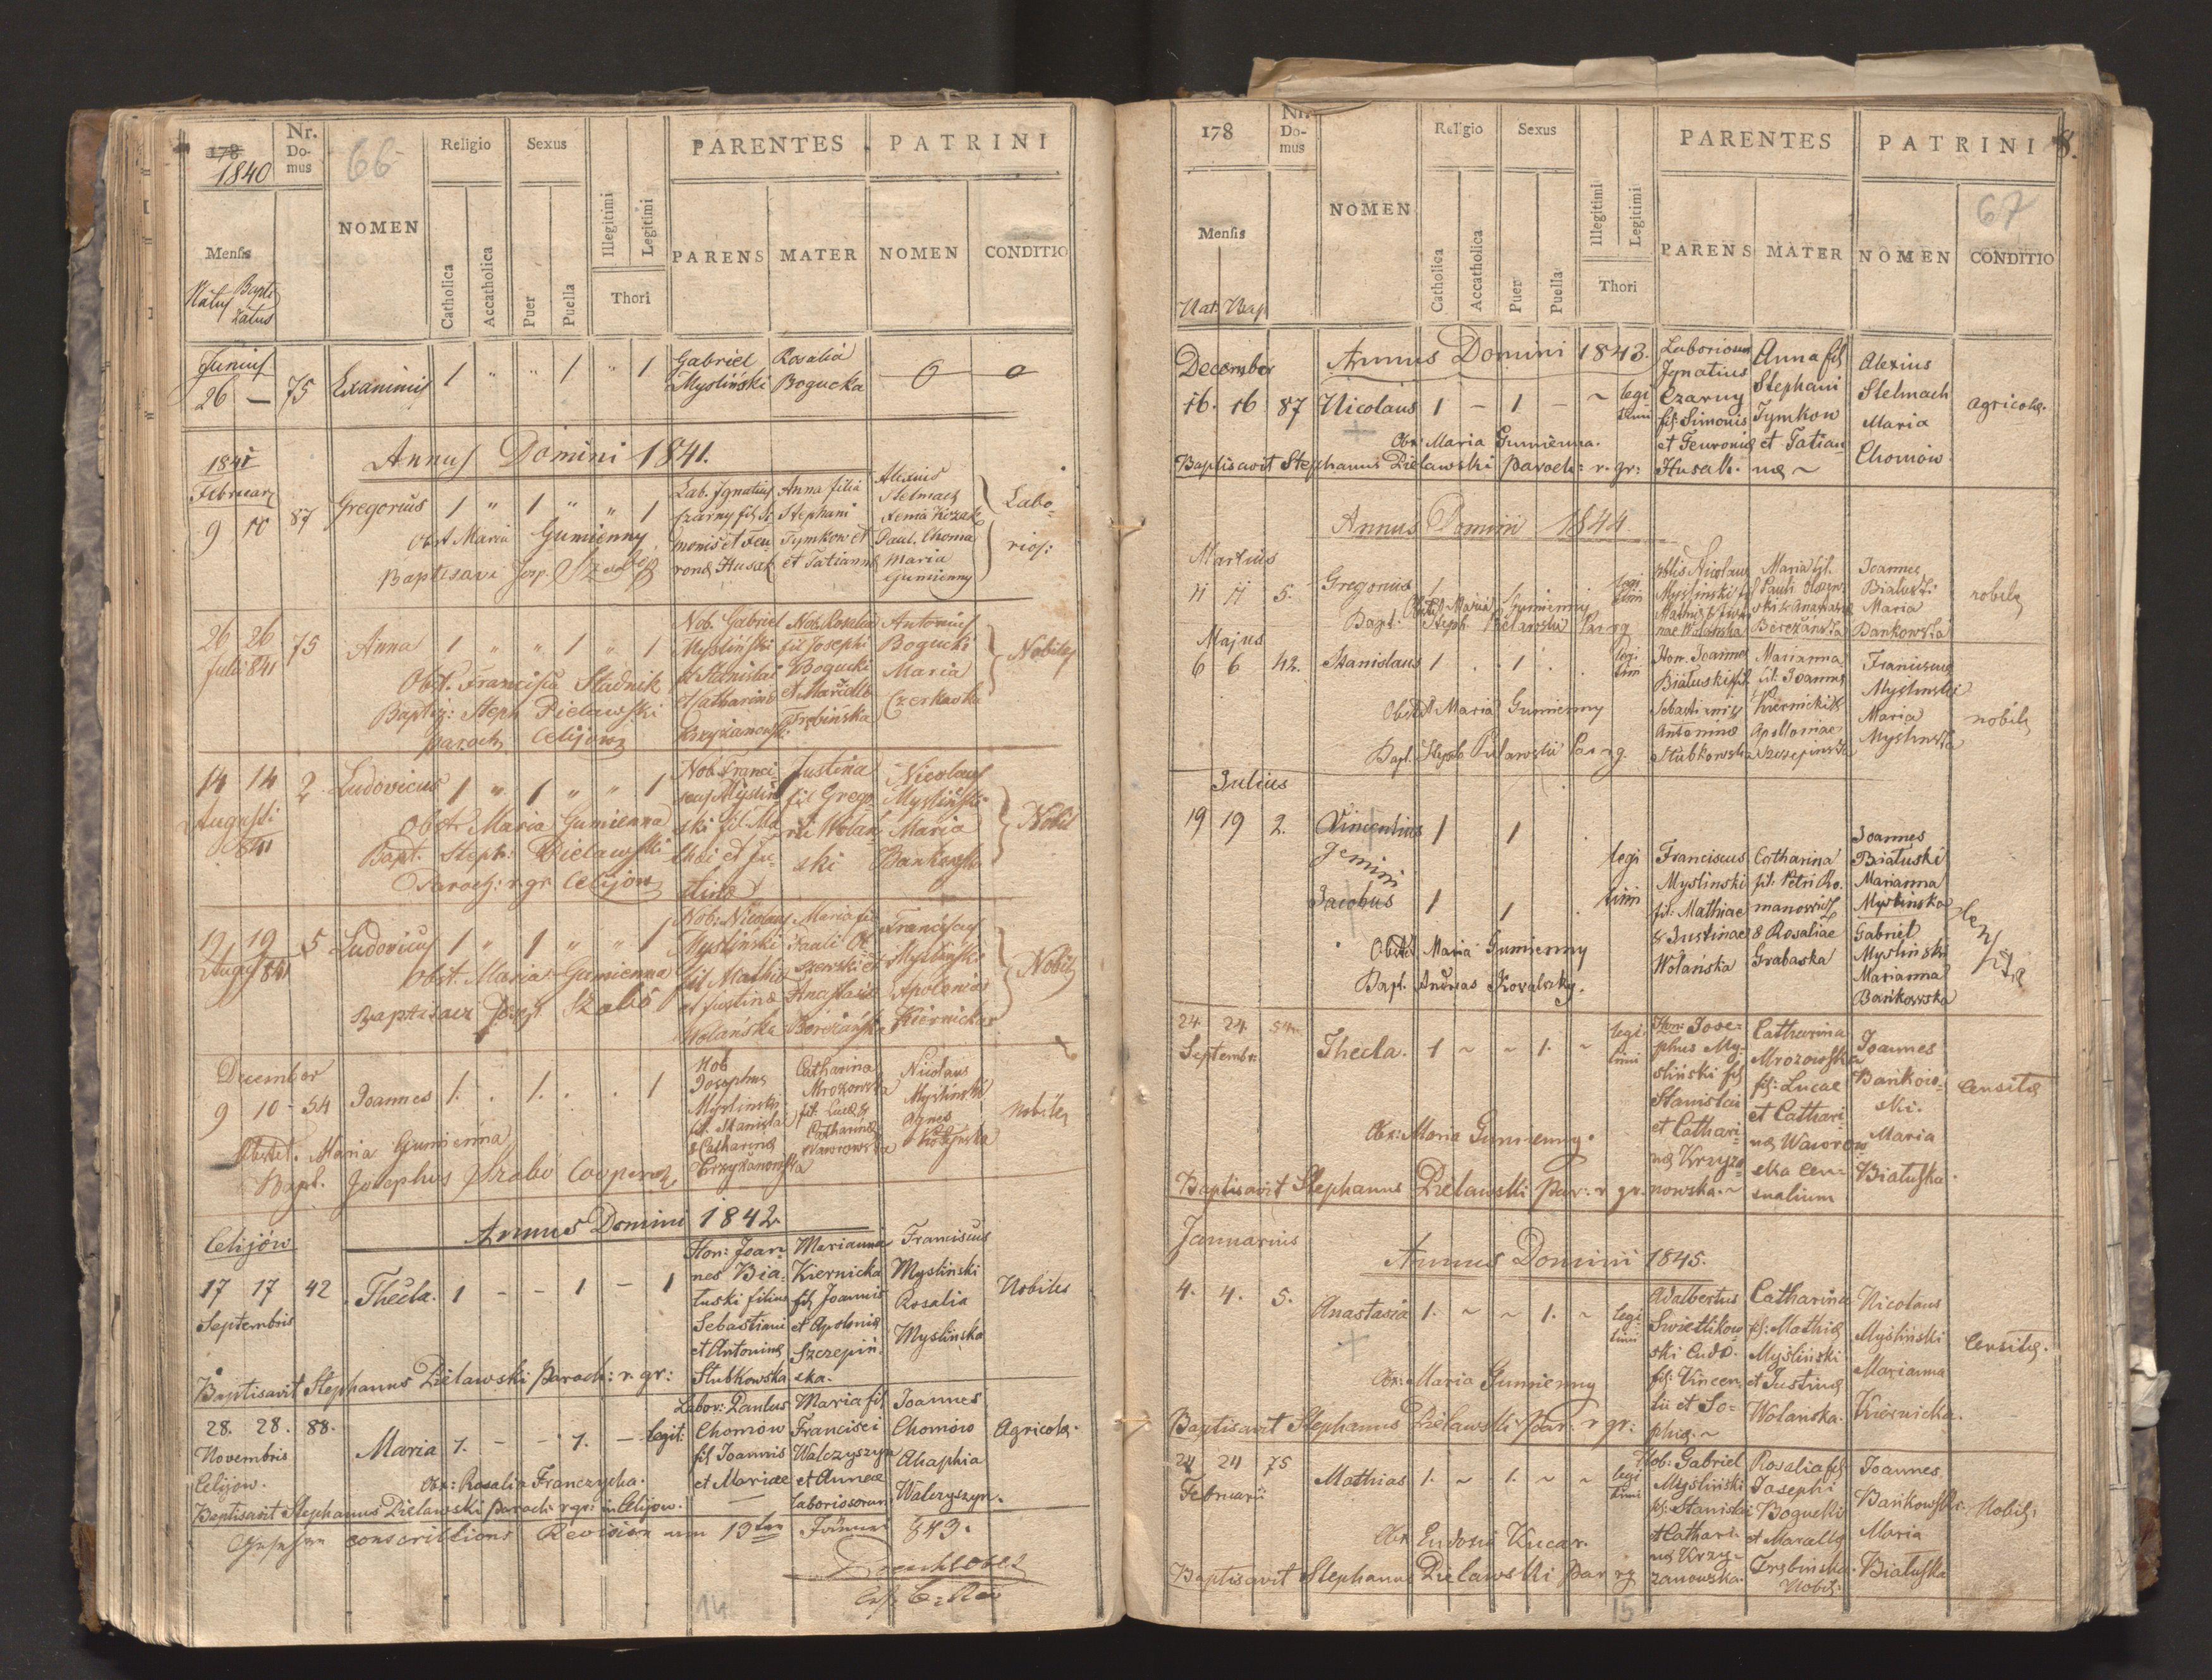 178
1840
Nr. Domus
66
NOMEN
Religio
Sexus
Catholica
Accatholica
Puer
Puella
Illegitimi
Legitimi
Thori
PARENTES
PATRINI
PARENS MATER NOMEN CONDITIO
Mensis
Natus Baptizatus
Junius
26 — 75 Exanimis 1 " " 1 " 1
Gabriel Mysliński
Rosalia Bogucka
Annus Domini 1841.
1841
Februar
9 10 87 Gregorius 1 " 1 " " 1
Lab. Ignatius
Czarny fil. Si
monis et Feu
Anna filia
Stephani
Tymkow et
et Tatianna
Alexius
Stelmach
Paul. Choma
Maria
Gumienny
Labo-
rios:
Obst Maria Gumienny
Baptisavi Josp. Szabo
26 26 75 Anna 1 " " 1 " 1
Julii 841
Nob. Gabriel
Mysliński
fil Stanislai
et Catharine
Nob. Rosalia
fil Josephi
Bogucki
Trębińska
Antonius
Bogucki
Maria
Czerkawska
Nobiles
Obst. Francisca Stadnik
Baptiz: Steph Pielawski
paroch Celijow
14 14 2 Ludovicus 1 " 1 " " 1
Augusti
841
Nob. Franci
scus Myslin
ski fil. Ma
thei et Ju
stina
Justina
fil Grego
rii Wolan
ski
Nicolaus
Mysliński
Maria
Bankowska
Nobil
Obst Maria Gumienna
Bapt. Steph: Pielawski
Paroch: r. gr. Celijow
19 19 5 Ludovicus 1 " 1 " " 1
Aug 841
Nob: Nicolaus
Mysliński
fil Mathei
et Justina
Wolańska
Maria fil
Pauli Ol
szewski et
Anastasie
Bereżańska
Franciscus
Mysliński
Apolonia
Kiernicka
Nobil
Obst. Maria Gumienna
Baptisavi Josp. Szabó
December
9 10 54 Joannes 1. . 1. . . 1
Nob
Josephus
Myslinski
fil. Stanislai
& Catharina
Krzyżanowska
Catharina
Mrozowska
fil. Lucae &
Catharina
Wawrowska
Nicolaus
Mysliński
Agnes
Nobiles
Obstet. Maria Gumienna
Bapt. Josephus Szabo Cooperat
Annus Domini 1842.
Celijów
17 17 42 Thecla. 1 - - 1 - 1
Septembris
Hon: Joan-
nes Bia-
łuski filius
Sebastiani
et Antonina
Słubkowska
Marianna
Kiernicka
fil Joannis
et Apolonia
Szczepiń-
ska.
Franciscus
Mysliński
Rosalia
Myslińska
Nobiles
Baptisavit Stephanus Pielawski Paroch: r. gr:
28. 28. 88. Maria 1. - - 1. - legit:
Novembris
Celijow.
Labor: Paulus
Chomów
fil Joannis
et Mariae
Maria fil
Francisci
Walczyszyn
et Annae
laboriosorum
Joannes
Chomów
Ahaphia
Walczyszyn.
Agricola.
Obs: Rosalia Franczycha.
Baptisavit Stephanus Pielawski paroch r.gr: in Celijow.
conscriptions Revision am 19ten Jänner 843.
14
178
Nr. Domus
NOMEN
Religio
Sexus
Catholica
Accatholica
Puer
Puella
Illegitimi
Legitimi
Thori
PARENTES
PATRINI
8.
67
PARENS MATER NOMEN CONDITIO
Mensis
Nat. Bap
December
Annus Domini 1843.
16. 16 87 Nicolaus 1 - 1 - ~ legi
timi
Laboriosus
Ignatius
Czarny
fil: Simonis
et Feuronia
Husak.
Anna fil
Stephani
Tymkow
et Tatian-
na ~
Alexius
Stelmach
Maria
Chomów
Agricola.
Obs: Maria Gumienna.
Baptisavit Stephanus Pielawski Paroch: r. gr:
Annus Domini 1844.
Martius
11 11 5. Gregorius 1 1 legi
timi
Nicolaus
Myslinski fil
Wolanska
Maria fil.
Pauli Olszew-
ski & Anastasia
Bereżańska
Joannes
Białuski
Maria
Bankowska
nobiles
Obstet Maria Gumienny
Bapt: Steph Pielawski Par rg
Majus
6 6 42. Stanislaus 1 . 1 . . legi
tim
Hon. Joannes
Białuski fil.
Sebastiani &
Antonina
Słubkowska
Marianna
fil: Joannis
Kiernicki &
Apolloniae
Szczepinska
Franciscus
Myslinski
Maria
Myslinska
nobiles
Obstet Maria Gumienny
Bapt. Steph Pielawski Par rg.
Julius
19 19 2. Vincentius 1 . 1 .
gemini
Jacobus 1 1 .
legi
timi
Franciscus
Myslinski
fil: Mathiae
& Justinae
Wolańska
Catharina
fil: Petri Ro-
manowicz
& Rosaliae
Grabaska
Joannes
Białuski
Marianna
Myslinska
Gabriel
Myslinski
Marianna
Bańkowska
censitae
Obstet Maria Gumienny
Bapt. Andreas Kovalszky.
24 24 54. Thecla. 1 ~ ~ 1. ~ legi-
timi
Septembr.
Hon: Jose-
phus My-
sliński fil
Stanislai
et Cathari-
na Krzyża-
nowska. ~
Catharina
Mrozowska
fil: Lucae
et Cathari-
na Wawrow-
ska cen-
sualium
Joannes
Bańkow-
ski.
Maria
Białuska.
Censitae
Obs: Maria Gumienny.
Baptisavit Stephanus Pielawski Par: r gr.
Januarius
Annus Domini 1845.
4. 4. 5. Anastasia 1. ~ ~ 1. ~ legi
timi
Adalbertus
Swietlikow-
ski
fil: Vincen-
tii et So-
phia. ~
Catharina
fil: Mathia
Myśliński
et Justina
Wolańska.
Nicolaus
Myśliński
Marianna
Kiernicka.
Censitae.
Obs: Maria Gumienny
Baptisavit Stephanus Pielawski Par. r gr:
24 24 75 Mathias 1. ~ 1. ~ ~ legi
timi
Februarii
Nob: Gabriel
Myśliński
fil: Stanislai
et Cathari-
na Krzy-
żanowska.
Rosalia fil
Josephi
Bogucki
et Marcella
Trębińska.
Nobil:
Joannes
Bańkowski.
Maria
Białuska
Nobil:
Obs: Eudosia Kucar.
Baptisavit Stephanus Pielawski Par rg
15